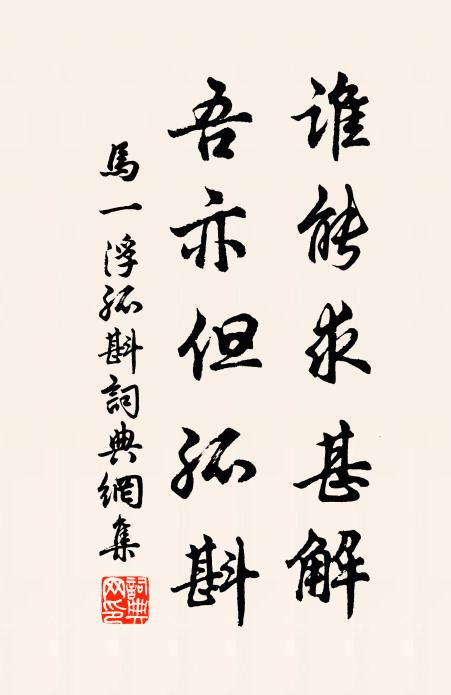 誰能求甚解
吾亦但孤斟
馬一浮孤斟詞典網集
詞典網印